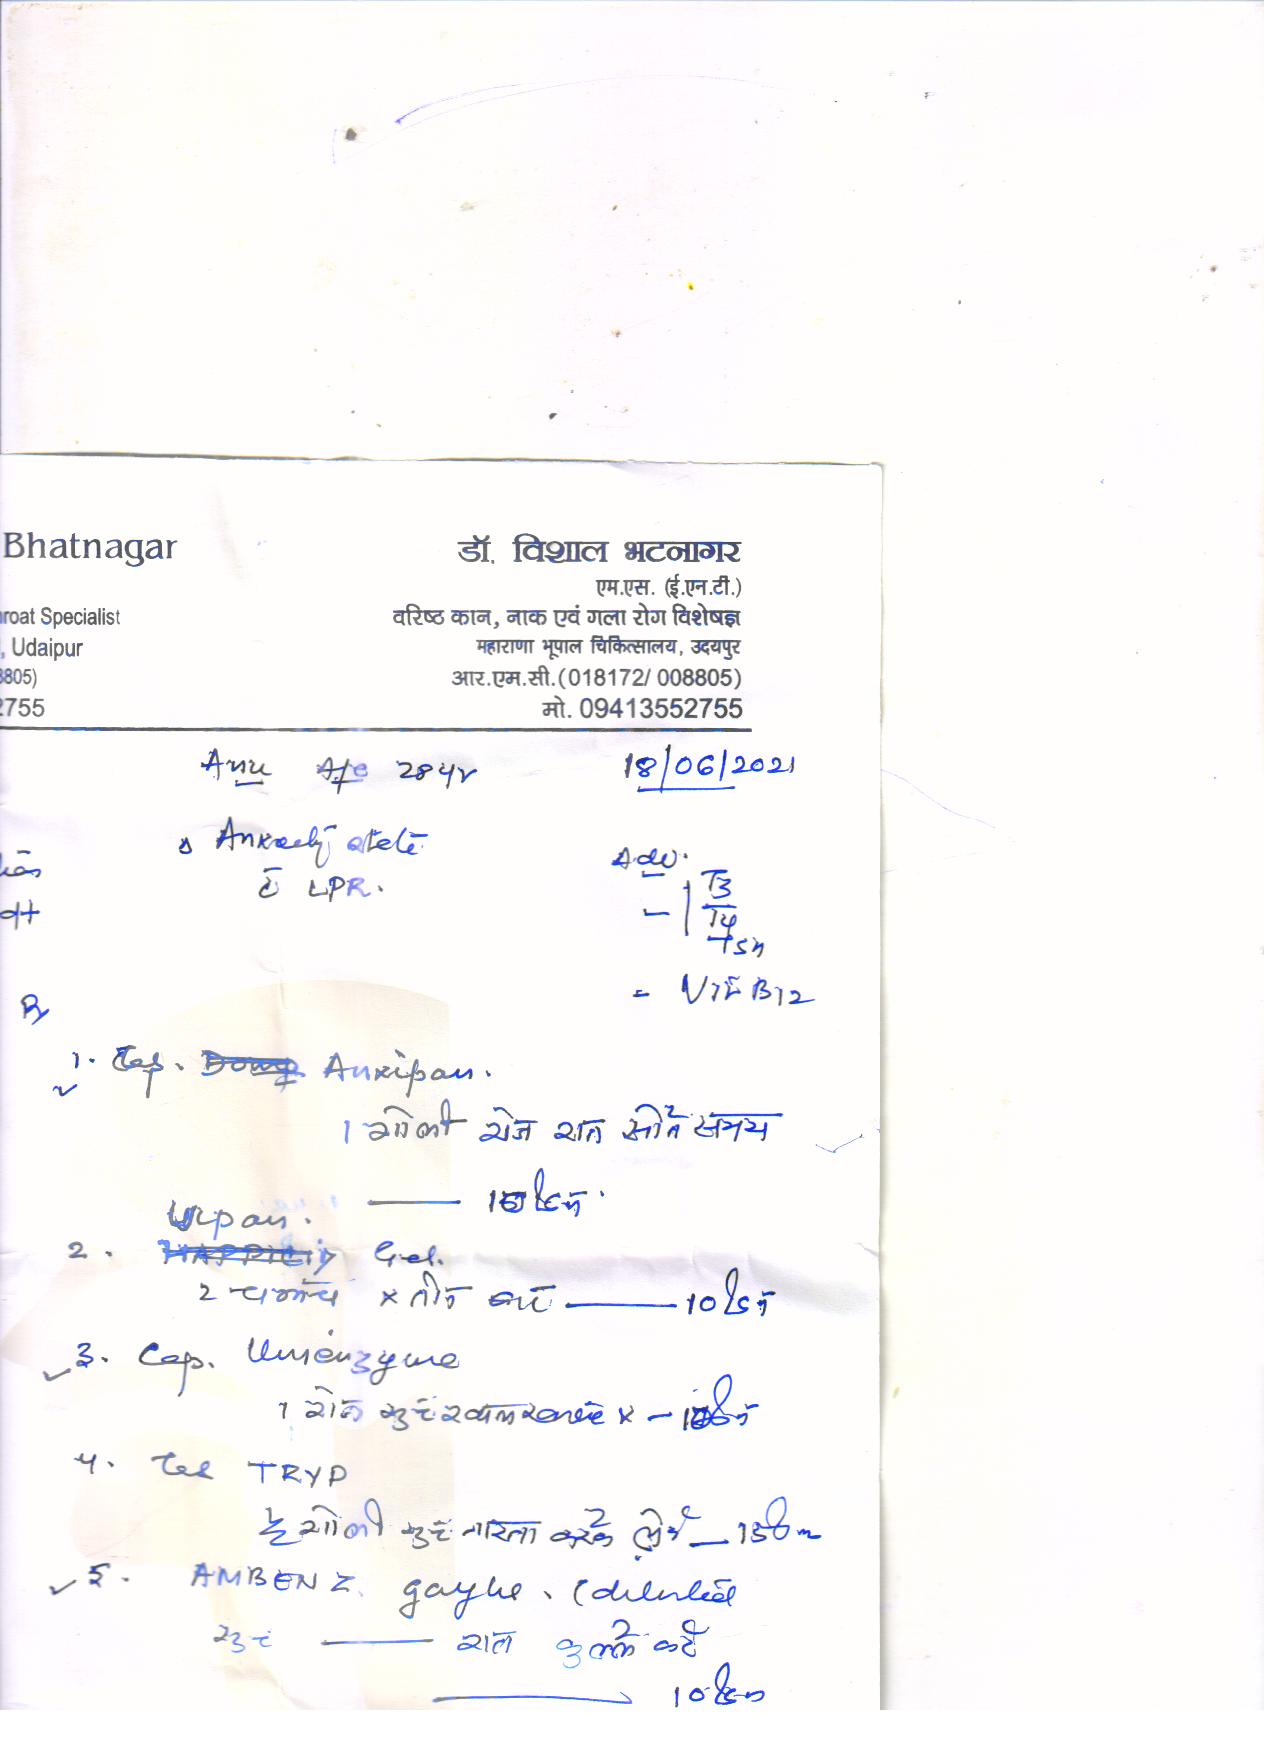 Bhatnagar
डॉ. विशाल भटनागर
एम.एस. (ई.एन.टी.)
roat Specialist
वरिष्ठ कान, नाक एवं गला रोग विशेषज्ञ
, Udaipur
महाराणा भूपाल चिकित्सालय, उदयपुर
8805)
आर.एम.सी.(018172/ 008805)
2755
मो. 09413552755
Anu 28yr
18/06/2021
state
LPR.
Adv.
T3
T4
TSH
- Vit B12
Rx
1. Cap. Anxipan.
1 गोली रोज रात सोते समय
2. Gel.
2 चम्मच x तीन बार — 10 दिन
3. Cap. Unienzyme
4. Tab TRYP
गोली सुबह नाश्ता करके लेवें —
5. AMBENZ gargle. (diluted
सुबह — रात कुल्ले करें
10 दिन